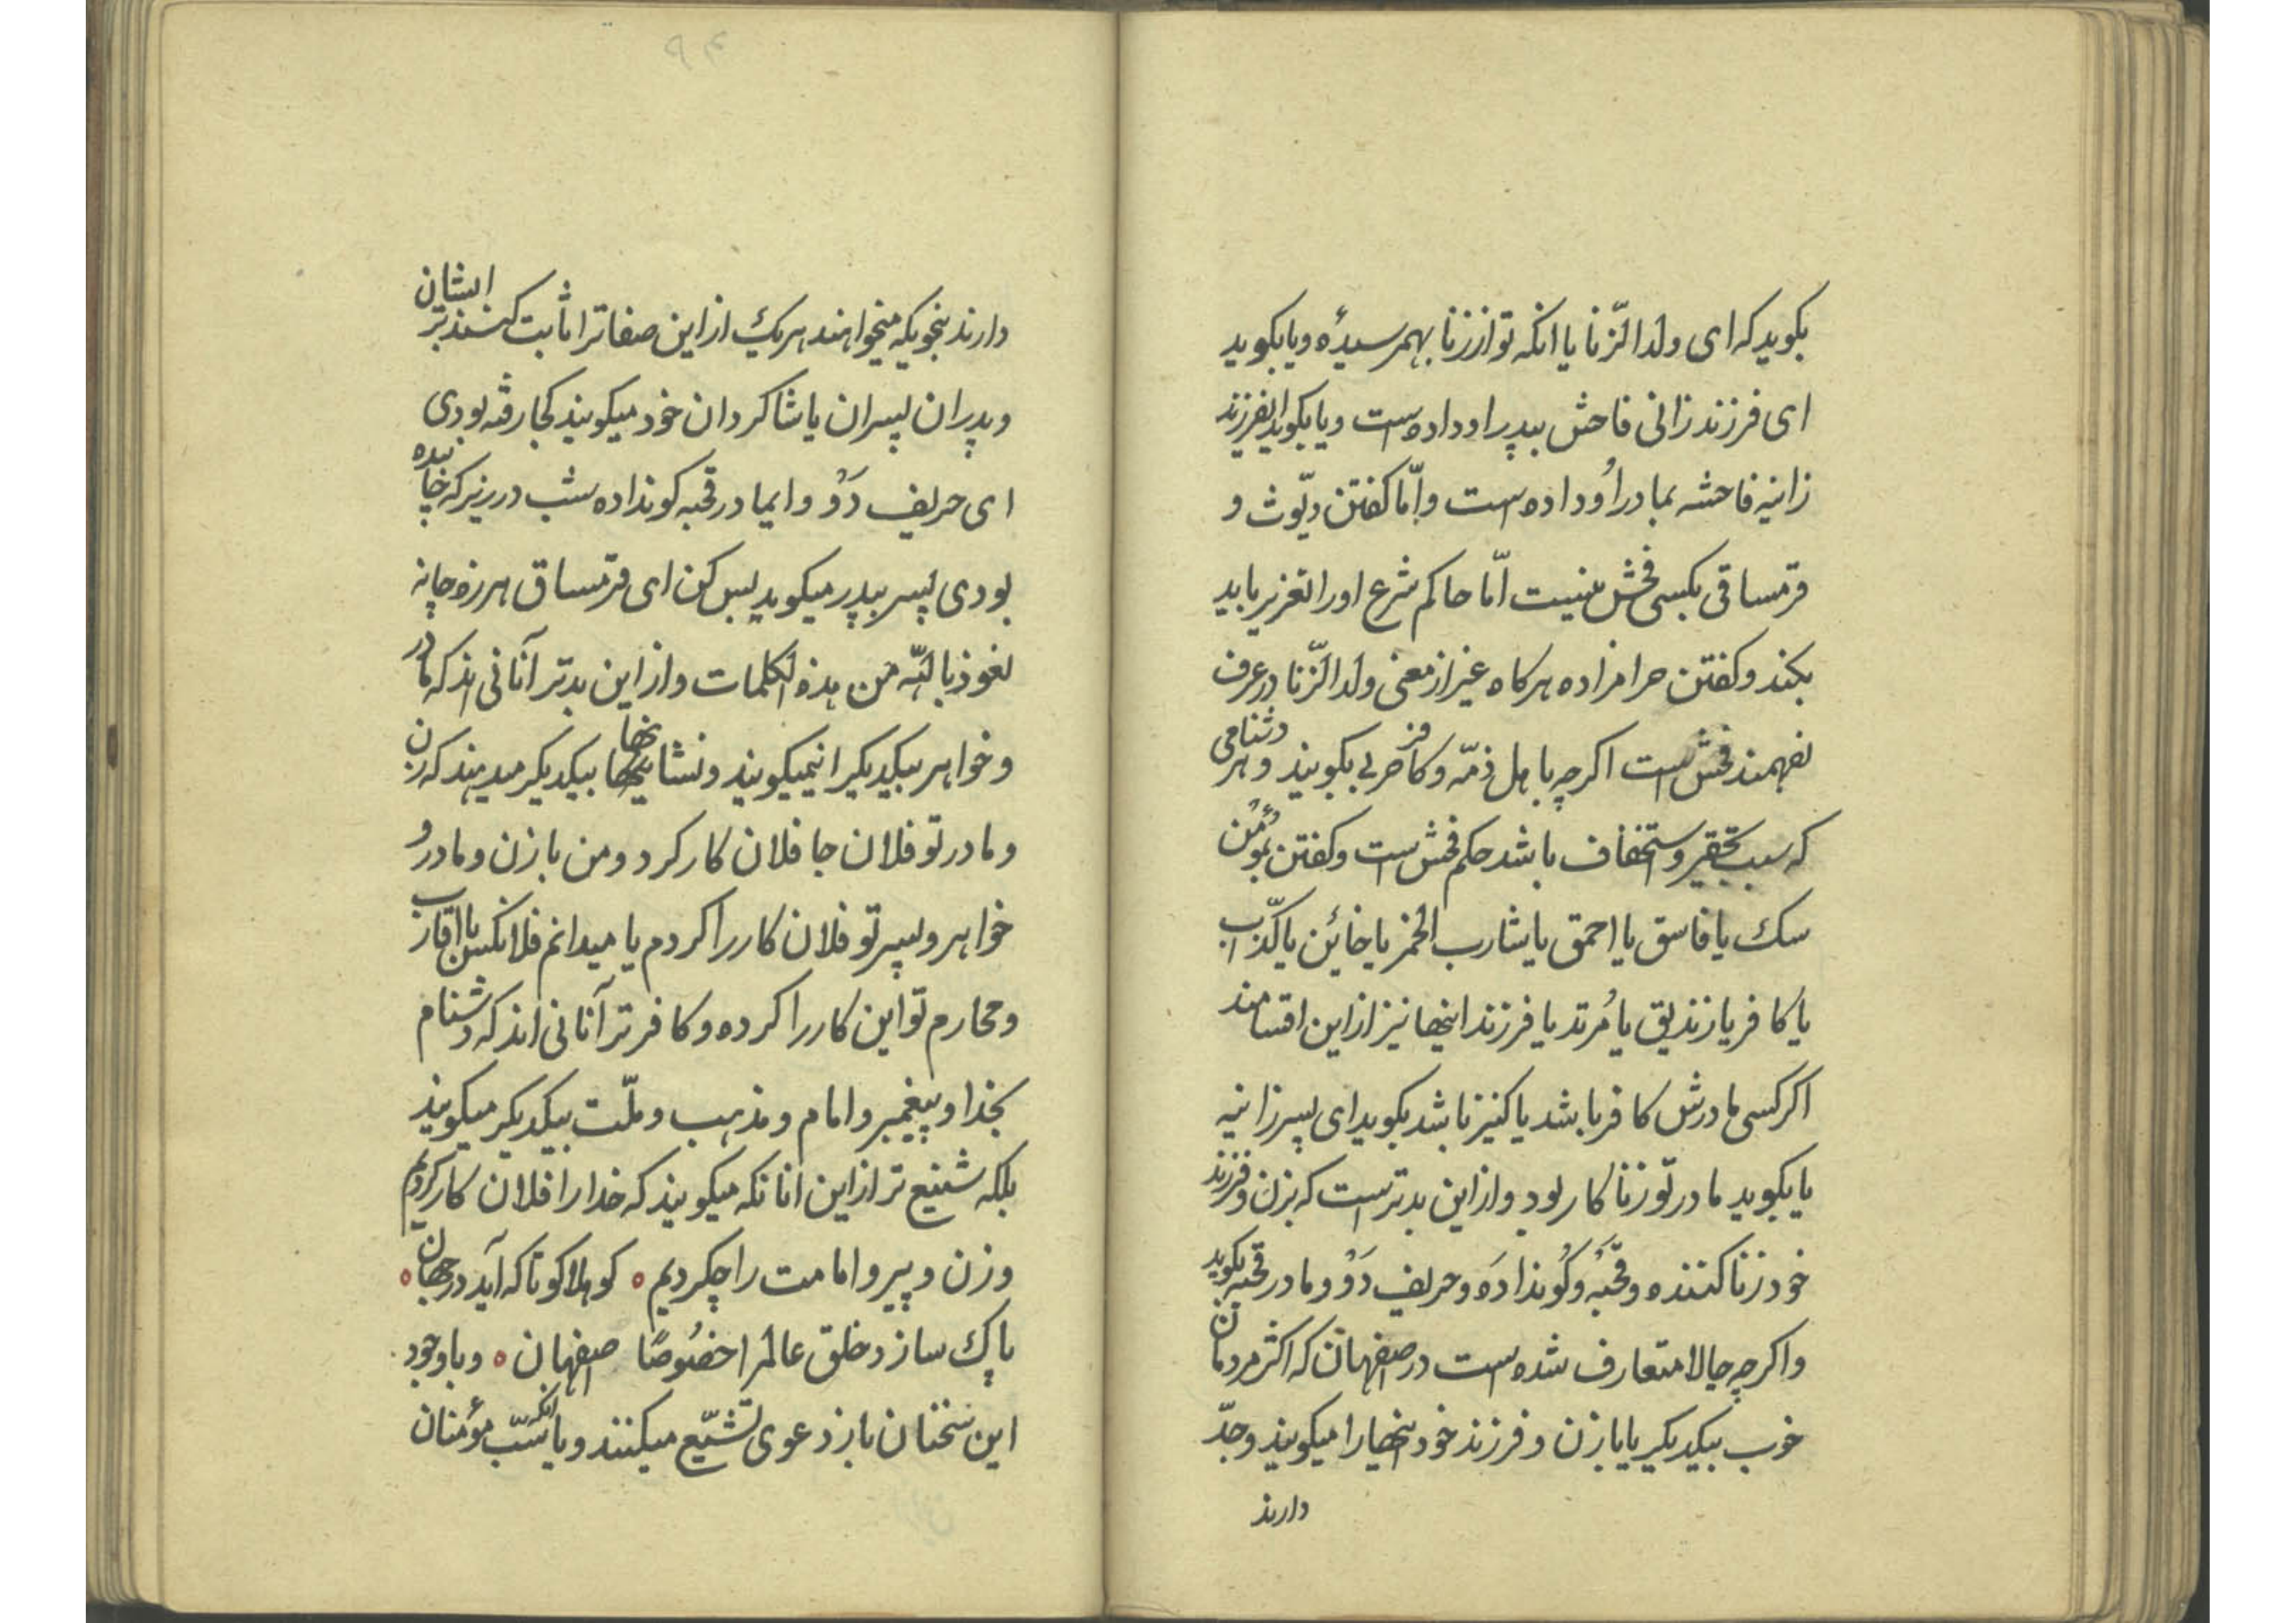 بکوید که ای ولد الزّنا یا انکه تو از زنا بهمرسیدهٔ و یا بکوید
ای فرزند زانی فاحش بپدر او داده است و یا بکوید ایفرزند
زانیه فاحشه بمادر اُو داده است و امّا کفتن دیّوث و
قرمساقی بکسی فحش نیست امّا حاکم شرع او را تعزیر باید
بکند و کفتن حرامزاده هرکاه غیر از معنی ولد الزّنا در عرف
نفهمند فحش است اکرچه باهل ذمّه و کافر حربی بکویند و هر دشنامی
که سبب تحقیر و استخفاف باشد حکم فحش است و کفتن بمُؤمن
سک یا فاسق یا احمق یا شارب الخمر یا خائن یا کذّاب
یا کافر یا زندیق یا مُرتد یا فرزند اینها نیز از این اقسامند
اکر کسی مادرش کافر باشد یا کنیز باشد بکوید ای پسر زانیه
یا بکوید مادر تو زناکار بود و از این بدتر است که بزن و فرزند
خود زنا کننده و قحبَهُ و کُونداَدَه و حریف دَوُ و مادر قحبه بکوید
و اکرچه حالا متعارف شده است در اصفهان که اکثر مردمان
خوب بیکدیکر یا با زن و فرزند خود اینها را میکویند و جدّ
دارند
۹۴
دارند بنحویکه میخواهند هریک از این صفاترا ثابت کنند بر ایشان
و پدران پسران یا شاکردان خود میکویند کجا رفته بودی
ای حریف دَوُ و ای مادر قحبه کونداده شب در زیر که خابیده
بودی پسر بپدر میکوید بس کن ای قرمساق هرزه چانه
نعوذ باللّه من هذه الکلمات و از این بدتر آنانی اند که مادر
و خواهر بیکدیکر را نمیکویند و نشانیها بیکدیکر میدهند که زن
و مادر تو فلان جا فلان کار کرد و من با زن و مادر و
خواهر و پسر تو فلان کار را کردم یا میدانم فلانکس با اقارب
و محارم تو این کار را کرده و کافرتر آنانی اند که دشنام
بخدا و پیغمبر و امام و مذهب و ملّت بیکدیکر میکویند
بلکه شنیع تر از این انانکه میکویند که خدا را فلان کار کردیم
و زن و پیر و امامت را چکردیم ه کو هلاکو تا که آید در جهان ه
پاک سازد خلق عالمرا خصُوصًا اصفهان ه و با وجود
این سخنان باز دعوی تشیّع میکنند و با انکه سَبّ مؤمنان